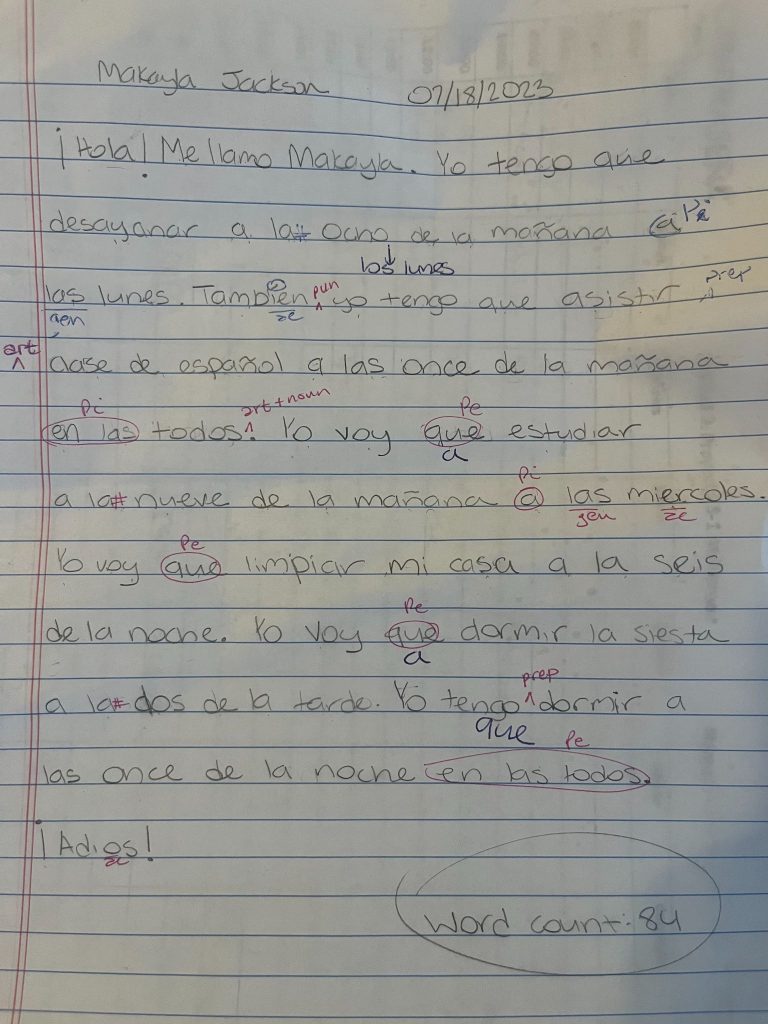 Makayla Jackson 07/18/2023
¡Hola! Me llamo Makayla. Yo tengo que
desayanar a la# ocho de la mañana @ Pi
los lunes
las lunes. También yo tengo que asistir
pun
prep
gen
ze
art
clase de español a las once de la mañana
Pi
art + noun
Pe
en las todos. Yo voy que estudiar
a
Pi
a la# nueve de la mañana a las miercoles.
gen
ze
Pe
Yo voy que limpiar mi casa a la seis
Pe
de la noche. Yo voy que dormir la siesta
a
prep
a la# dos de la tarde. Yo tengo dormir a
que
Pe
las once de la noche en las todos.
¡Adios!
ze
Word count: 84